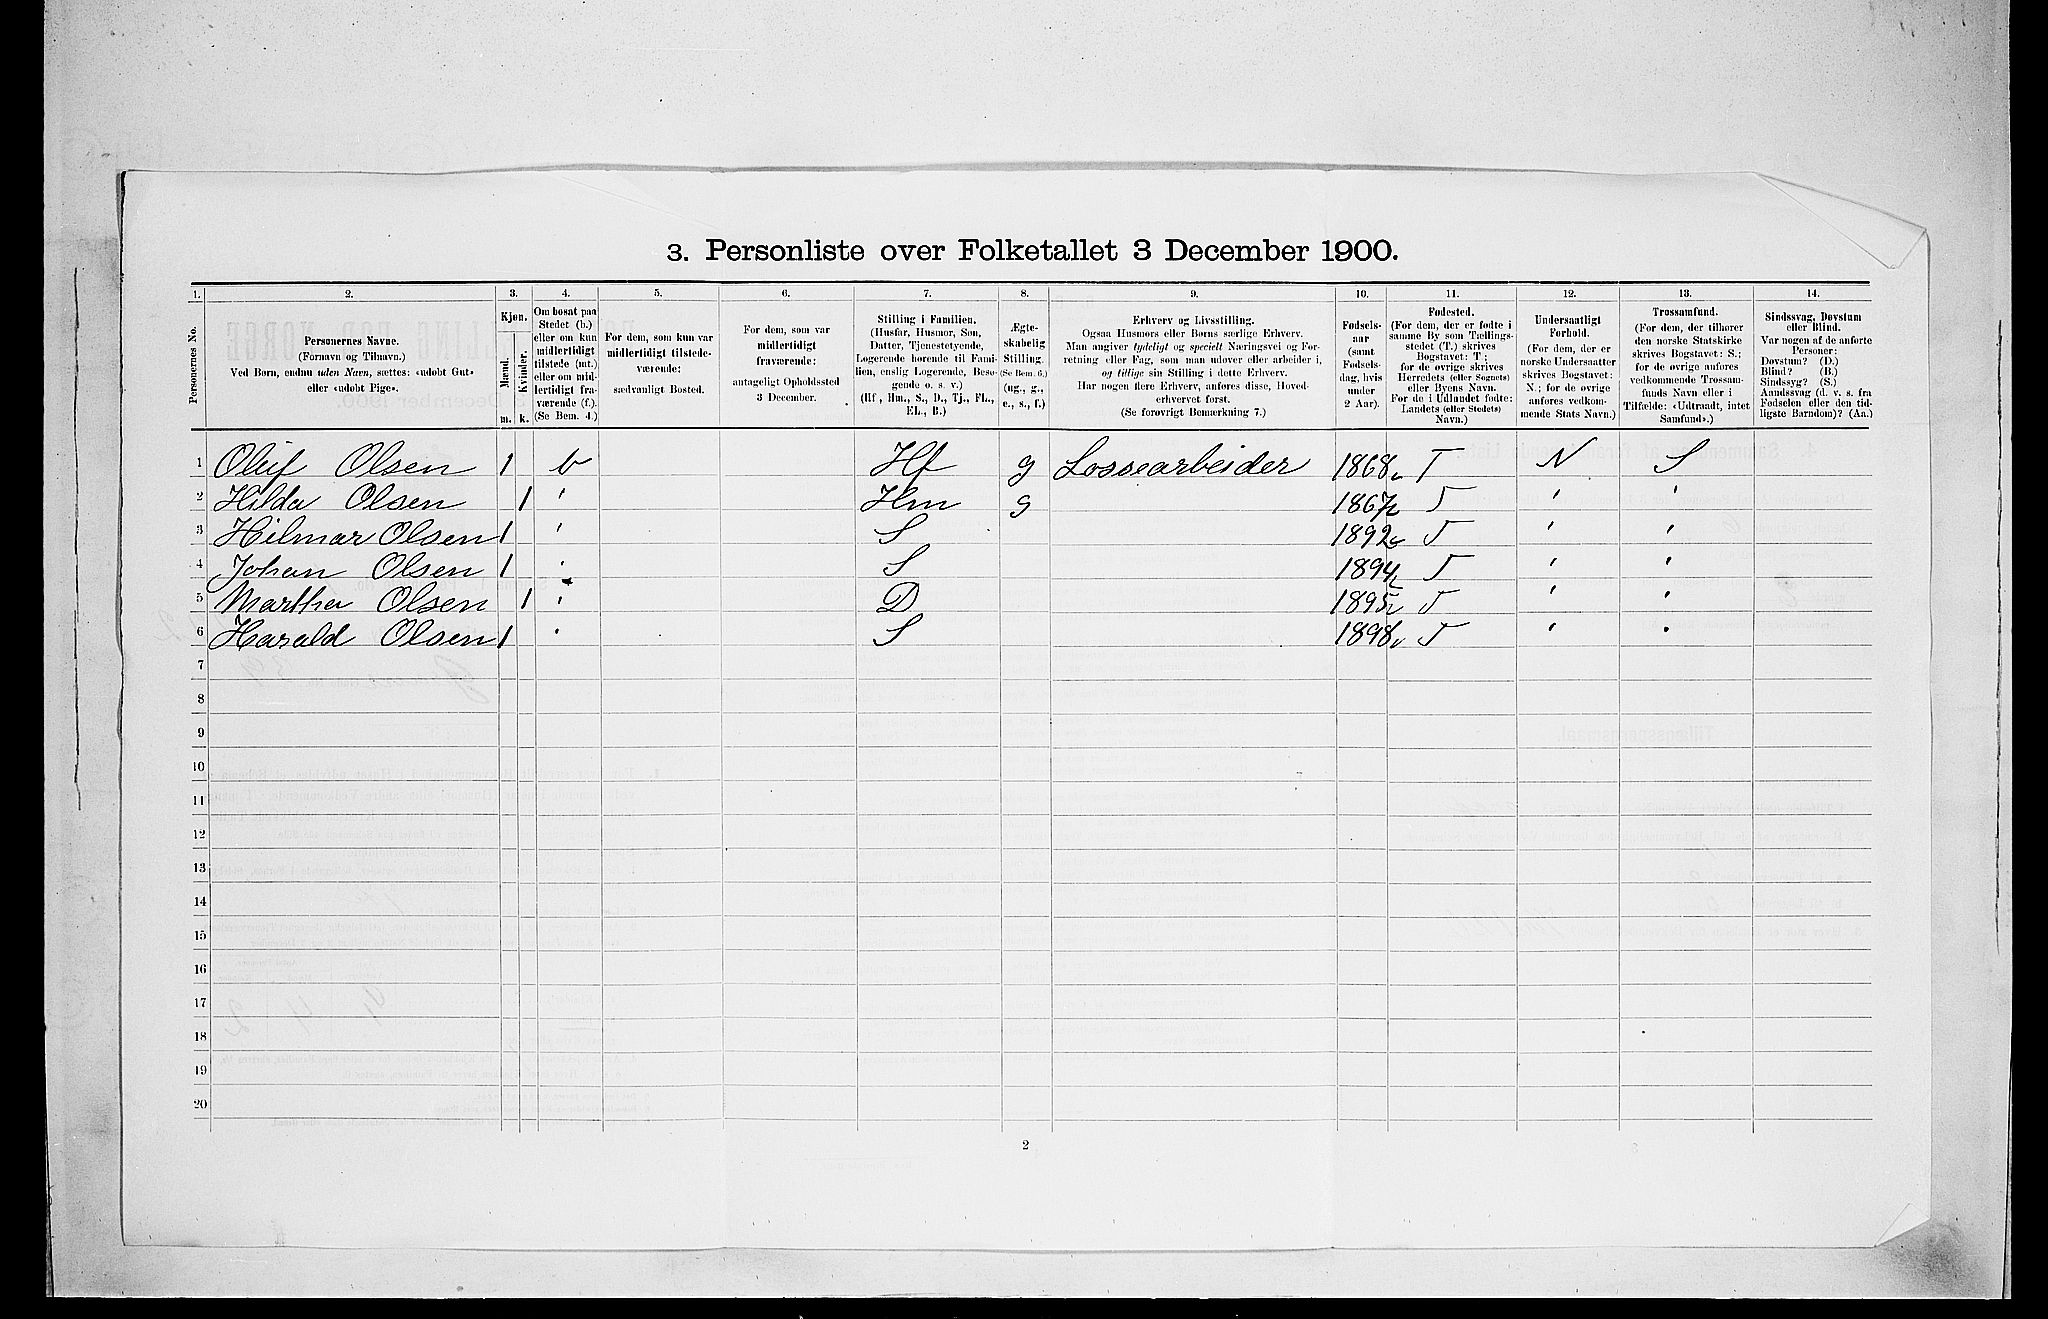 3. Personliste over Folketallet 3 December 1900.
1. 2. 3. 4. 5. 6. 7. 8. 9. 10. 11. 12. 13. 14.
Personernes No.
Personernes Navne.
(Fornavn og Tilnavn.)
Ved Børn, endnu uden Navn, sættes: «udøbt Gut»
eller «udøbt Pige».
Kjøn.
Mænd.
Kvinder.
m. k.
Om bosat paa
Stedet (b.)
eller om kun
midlertidigt
tilstede (mt.)
eller om mid-
lertidigt fra-
værende (f.).
(Se Bem. 4.)
For dem, som kun var
midlertidigt tilstede-
værende:
sædvanligt Bosted.
For dem, som var
midlertidigt
fraværende:
antageligt Opholdssted
3 December.
Stilling i Familien.
(Husfar, Husmor, Søn,
Datter, Tjenestetyende,
Logerende hørende til Fami-
lien, enslig Logerende, Besø-
gende o. s. v.)
(Hf, Hm., S., D., Tj., FL.,
EL., B.)
Ægte-
skabelig
Stilling.
(Se Bem. 6.)
(ug., g.,
e., s., f.)
Erhverv og Livsstilling.
Ogsaa Husmors eller Børns særlige Erhverv.
Man angiver tydeligt og specielt Næringsvei og For-
retning eller Fag, som man udøver eller arbeider i,
og tillige sin Stilling i dette Erhverv.
Har nogen flere Erhverv, anføres disse, Hoved-
erhvervet først.
(Se forøvrigt Bemærkning 7.)
Fødsels-
aar
(samt
Fødsels-
dag, hvis
under
2 Aar).
Fødested.
(For dem, der er fødte i
samme By som Tællings-
stedet (T.) skrives
Bogstavet: T;
for de øvrige skrives
Herredets (eller Sognets)
eller Byens Navn.
For de i Udlandet fødte:
Landets (eller Stedets)
Navn.)
Undersaatligt
Forhold.
(For dem, der er
norske Undersaatter
skrives Bogstavet:
N.; for de øvrige
anføres vedkom-
mende Stats Navn.)
Trossamfund.
(For dem, der tilhører
den norske Statskirke
skrives Bogstavet: S.;
for de øvrige anføres
vedkommende Trossam-
funds Navn eller i
Tilfælde: «Udtraadt, intet
Samfund».)
Sindssvag, Døvstum
eller Blind.
Var nogen af de anførte
Personer:
Døvstum? (D.)
Blind? (B.)
Sindssyg? (S.)
Aandssvag (d. v. s. fra
Fødselen eller den tid-
ligste Barndom)? (Aa.)
1 Oluf Olsen 1 b Hf g Lossearbeider 1868 T N S
2 Hilda Olsen 1 " Hm g 1867 T " "
3 Hilmar Olsen 1 " S 1892 T " "
4 Johan Olsen 1 " S 1894 T " "
5 Martha Olsen 1 " D 1895 T " "
6 Harald Olsen 1 " S 1898 T " "
7
8
9
10
11
12
13
14
15
16
17
18
19
20
2